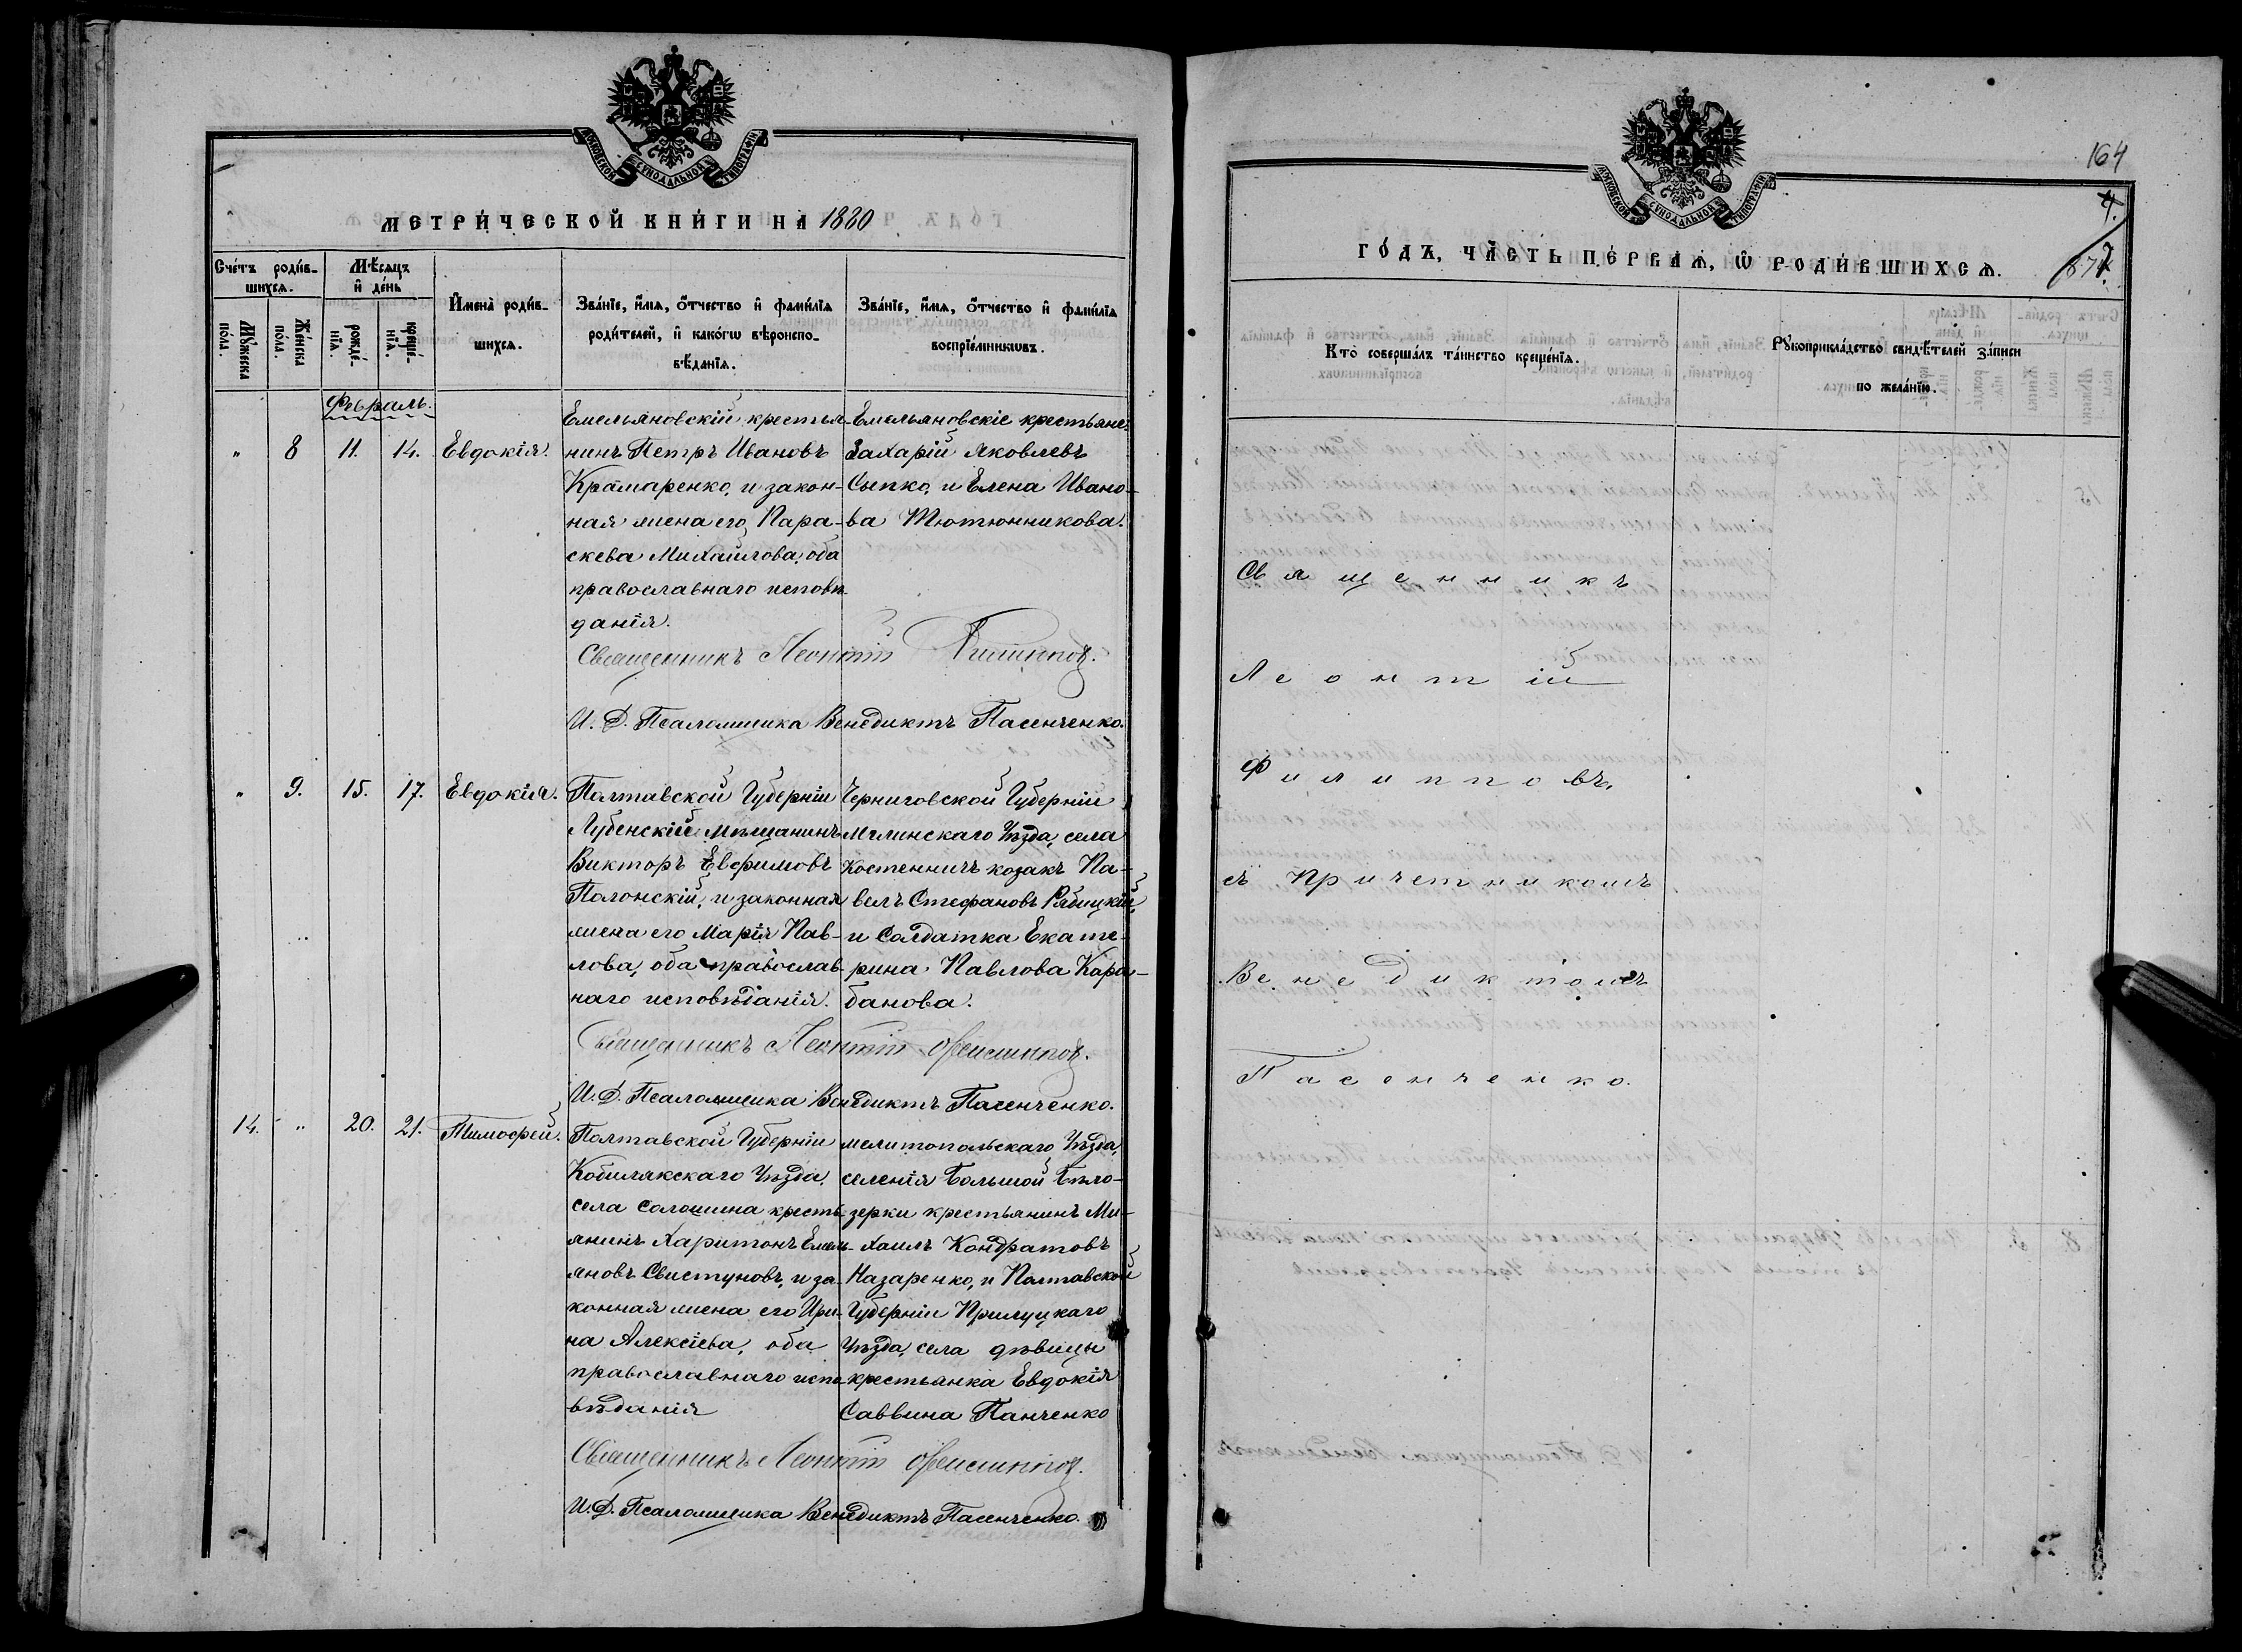 КІЕВСКОЙ СѴНОДАЛЬНОЙ ТИПОГРАФІИ
МЕТРИ́ЧЕСКОЙ КНИ́ГИ НА 1880
Сче́тъ роди́в-
шихсѧ.
Мѣ́сѧцъ
и҆ де́нь
Мꙋ́жеска по́ла.
Же́нска по́ла.
рожде́-
нїѧ.
креще́-
нїѧ.
И҆мена̀ роди́в-
шихсѧ.
Зва́нїе, и҆́мѧ, ѻ҆́тчество и҆ фами́лїѧ
роди́телей, и҆ како́гѡ вѣроиспо-
вѣ́данїѧ.
Зва́нїе, и҆́мѧ, ѻ҆́тчество и҆ фами́лїѧ
воспрїе́мникѡвъ.
Февраль.
" 8 11. 14. Евдокія.
Емельяновскій крестья-
нинъ Петръ Ивановъ
Крамаренко, и закон-
ная жена его Пара-
скева Михайлова, оба
православнаго исповѣ-
данія.
Емельяновскіе крестьяне:
Захарій Яковлевъ
Сыпко, и Елена Ивано-
ва Тютюнникова.
Священникъ Леонтій Филипповъ.
И. Д. Псаломщика Венедиктъ Пасенченко.
" 9. 15. 17. Евдокія.
Полтавской Губерніи
Лубенскій мѣщанинъ
Викторъ Евфимовъ
Полонскій, и законная
жена его Марія Пав-
лова, оба православ-
наго исповѣданія.
Черниговской Губерніи
Мглинскаго Уѣзда, села
Костеничъ козакъ Па-
велъ Стефановъ Рябицкій,
и Солдатка Екате-
рина Павлова Кара-
банова.
Священникъ Леонтій Филипповъ.
И. Д. Псаломщика Венедиктъ Пасенченко.
14. " 20. 21. Тимофей.
Полтавской Губерніи
Кобилякскаго Уѣзда,
села Солошина кресть-
янинъ Харитонъ Емель-
яновъ Свистуновъ, и за-
конная жена его Ири-
на Алексіева, оба
православнаго испо-
вѣданія
мелитопольскаго Уѣзда,
селенія Большой Бѣло-
зерки крестьянинъ Ми-
хаилъ Кондратовъ
Назаренко, и Полтавской
Губерніи Прилуцкаго
Уѣзда, села дѣвицы
крестьянка Евдокія
Саввина Панченко
Священникъ Леонтій Филипповъ.
И. Д. Псаломщика Венедиктъ Пасенченко.
КІЕВСКОЙ СѴНОДАЛЬНОЙ ТИПОГРАФІИ
164
ГО́ДЪ, ЧА́СТЬ ПЕ́РВАѦ, Ѽ РОДИ́ВШИХСѦ.
Кто̀ соверша́лъ та́инство креще́нїѧ.
Рꙋкоприкла́дство свидѣ́телей за́писи
по жела́нїю.
Священникъ
Леонтій
Филипповъ,
съ Причетникомъ
Венедиктомъ
Пасенченко.